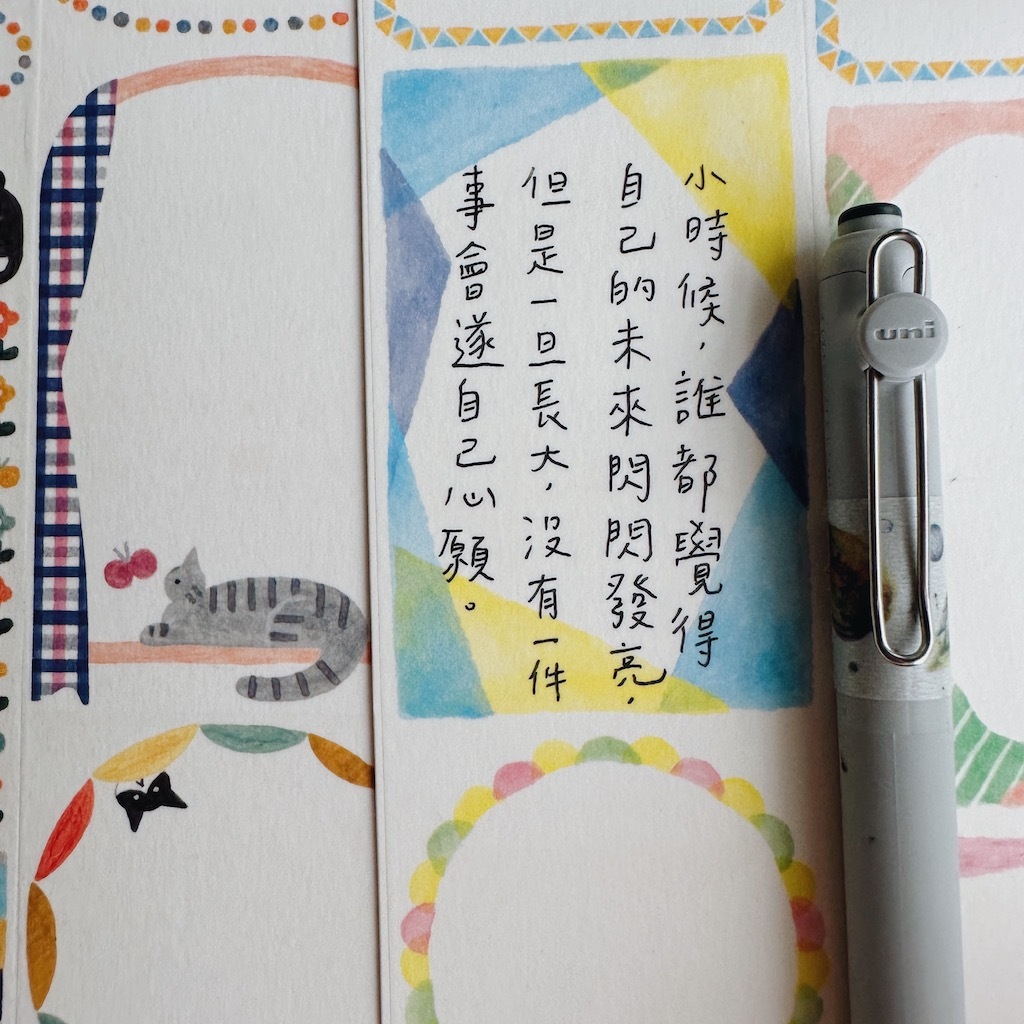 小時候，誰都覺得
自己的未來閃閃發亮，
但是一旦長大，沒有一件
事會遂自己心願。
uni